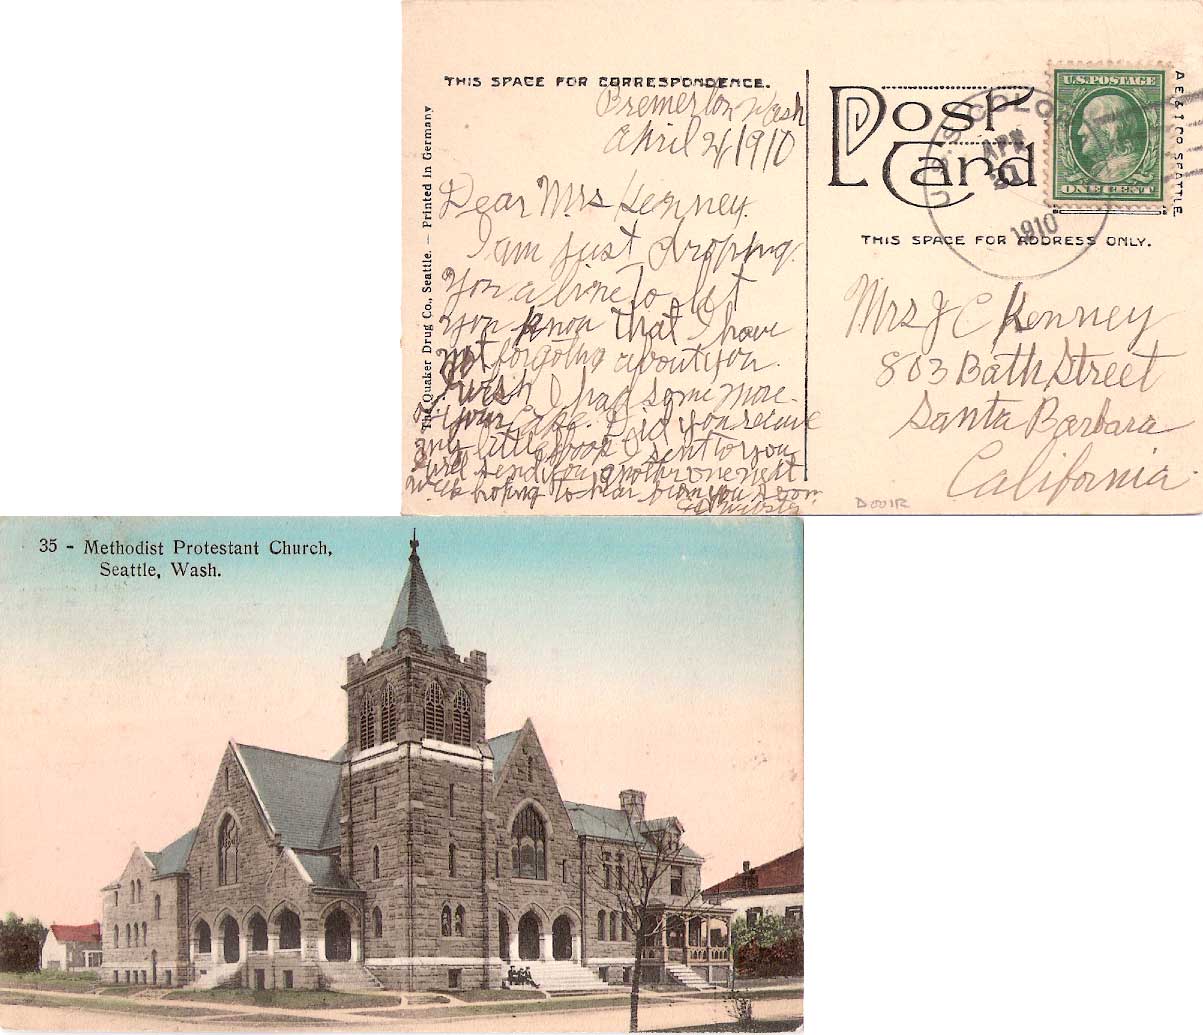 THIS SPACE FOR CORRESPONDENCE.
Bremerton Wash
April 21/1910
Dear Mrs Kenney.
I am just droping
you a line to let
you know that I have
not forgotng about you.
I wish I had some more
of your Cake. Did you receive
any little book I sent to you
will send you another one next
week hoping to hear from you soon
Webster
The Quaker Drug Co., Seattle. — Printed in Germany
Post
Card
U.S. POSTAGE
ONE CENT
U.S.S. COLO
APR
21
1910
A E & I CO SEATTLE
THIS SPACE FOR ADDRESS ONLY.
Mrs J C Kenney
803 Bath Street
Santa Barbara
California
D001R
35 - Methodist Protestant Church,
Seattle, Wash.